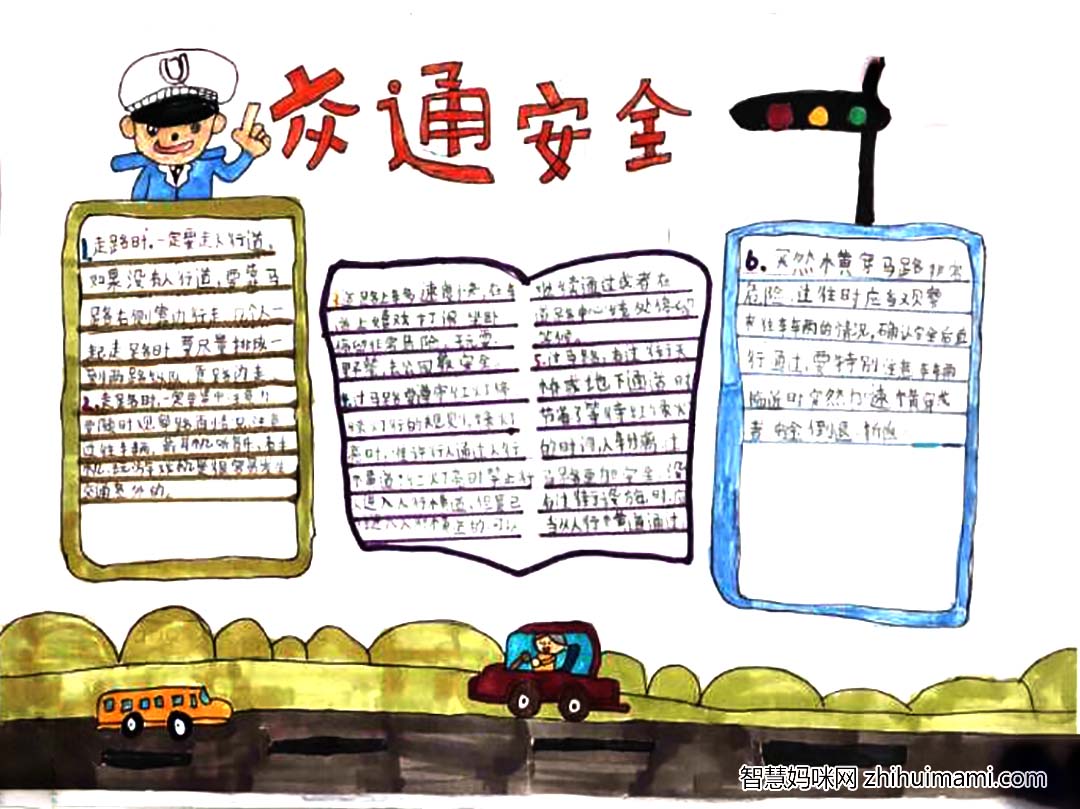 交通安全
1.走路时,一定要走人行道,
如果没有人行道,要靠马
路右侧靠边行走,几个人一
起走路时要尽量排成一
到两路纵队,靠路边走
2.走路时,一定要集中注意力
要随时观察路面情况,注意
过往车辆,戴耳机听音乐、看手
机、玩游戏机是很容易发生
交通意外的。
路上车多速度快,在
道上嬉戏打闹坐卧
停留非常危险,玩耍
野餐去公园最安全
过马路要遵守红灯停
绿灯行的规则,绿灯
亮时,准许行人通过人行
横道;红灯亮时禁止行
人进入人行横道,但是已
进入人行横道的可以
继续通过或者在
道路中心线处停留
等候。
5.过马路,走过街天
桥或地下通道时
节省了等待红绿灯
的时间
过马路更加安全,没
有过街设施时,应
当从人行横道通过
6.突然横穿马路非常
危险,过往时应当观察
来往车辆的情况,确认安全后直
行通过,要特别注意车辆
临近时突然加速横穿或
者中途倒退、折返
智慧妈咪网 zhihuimami.com